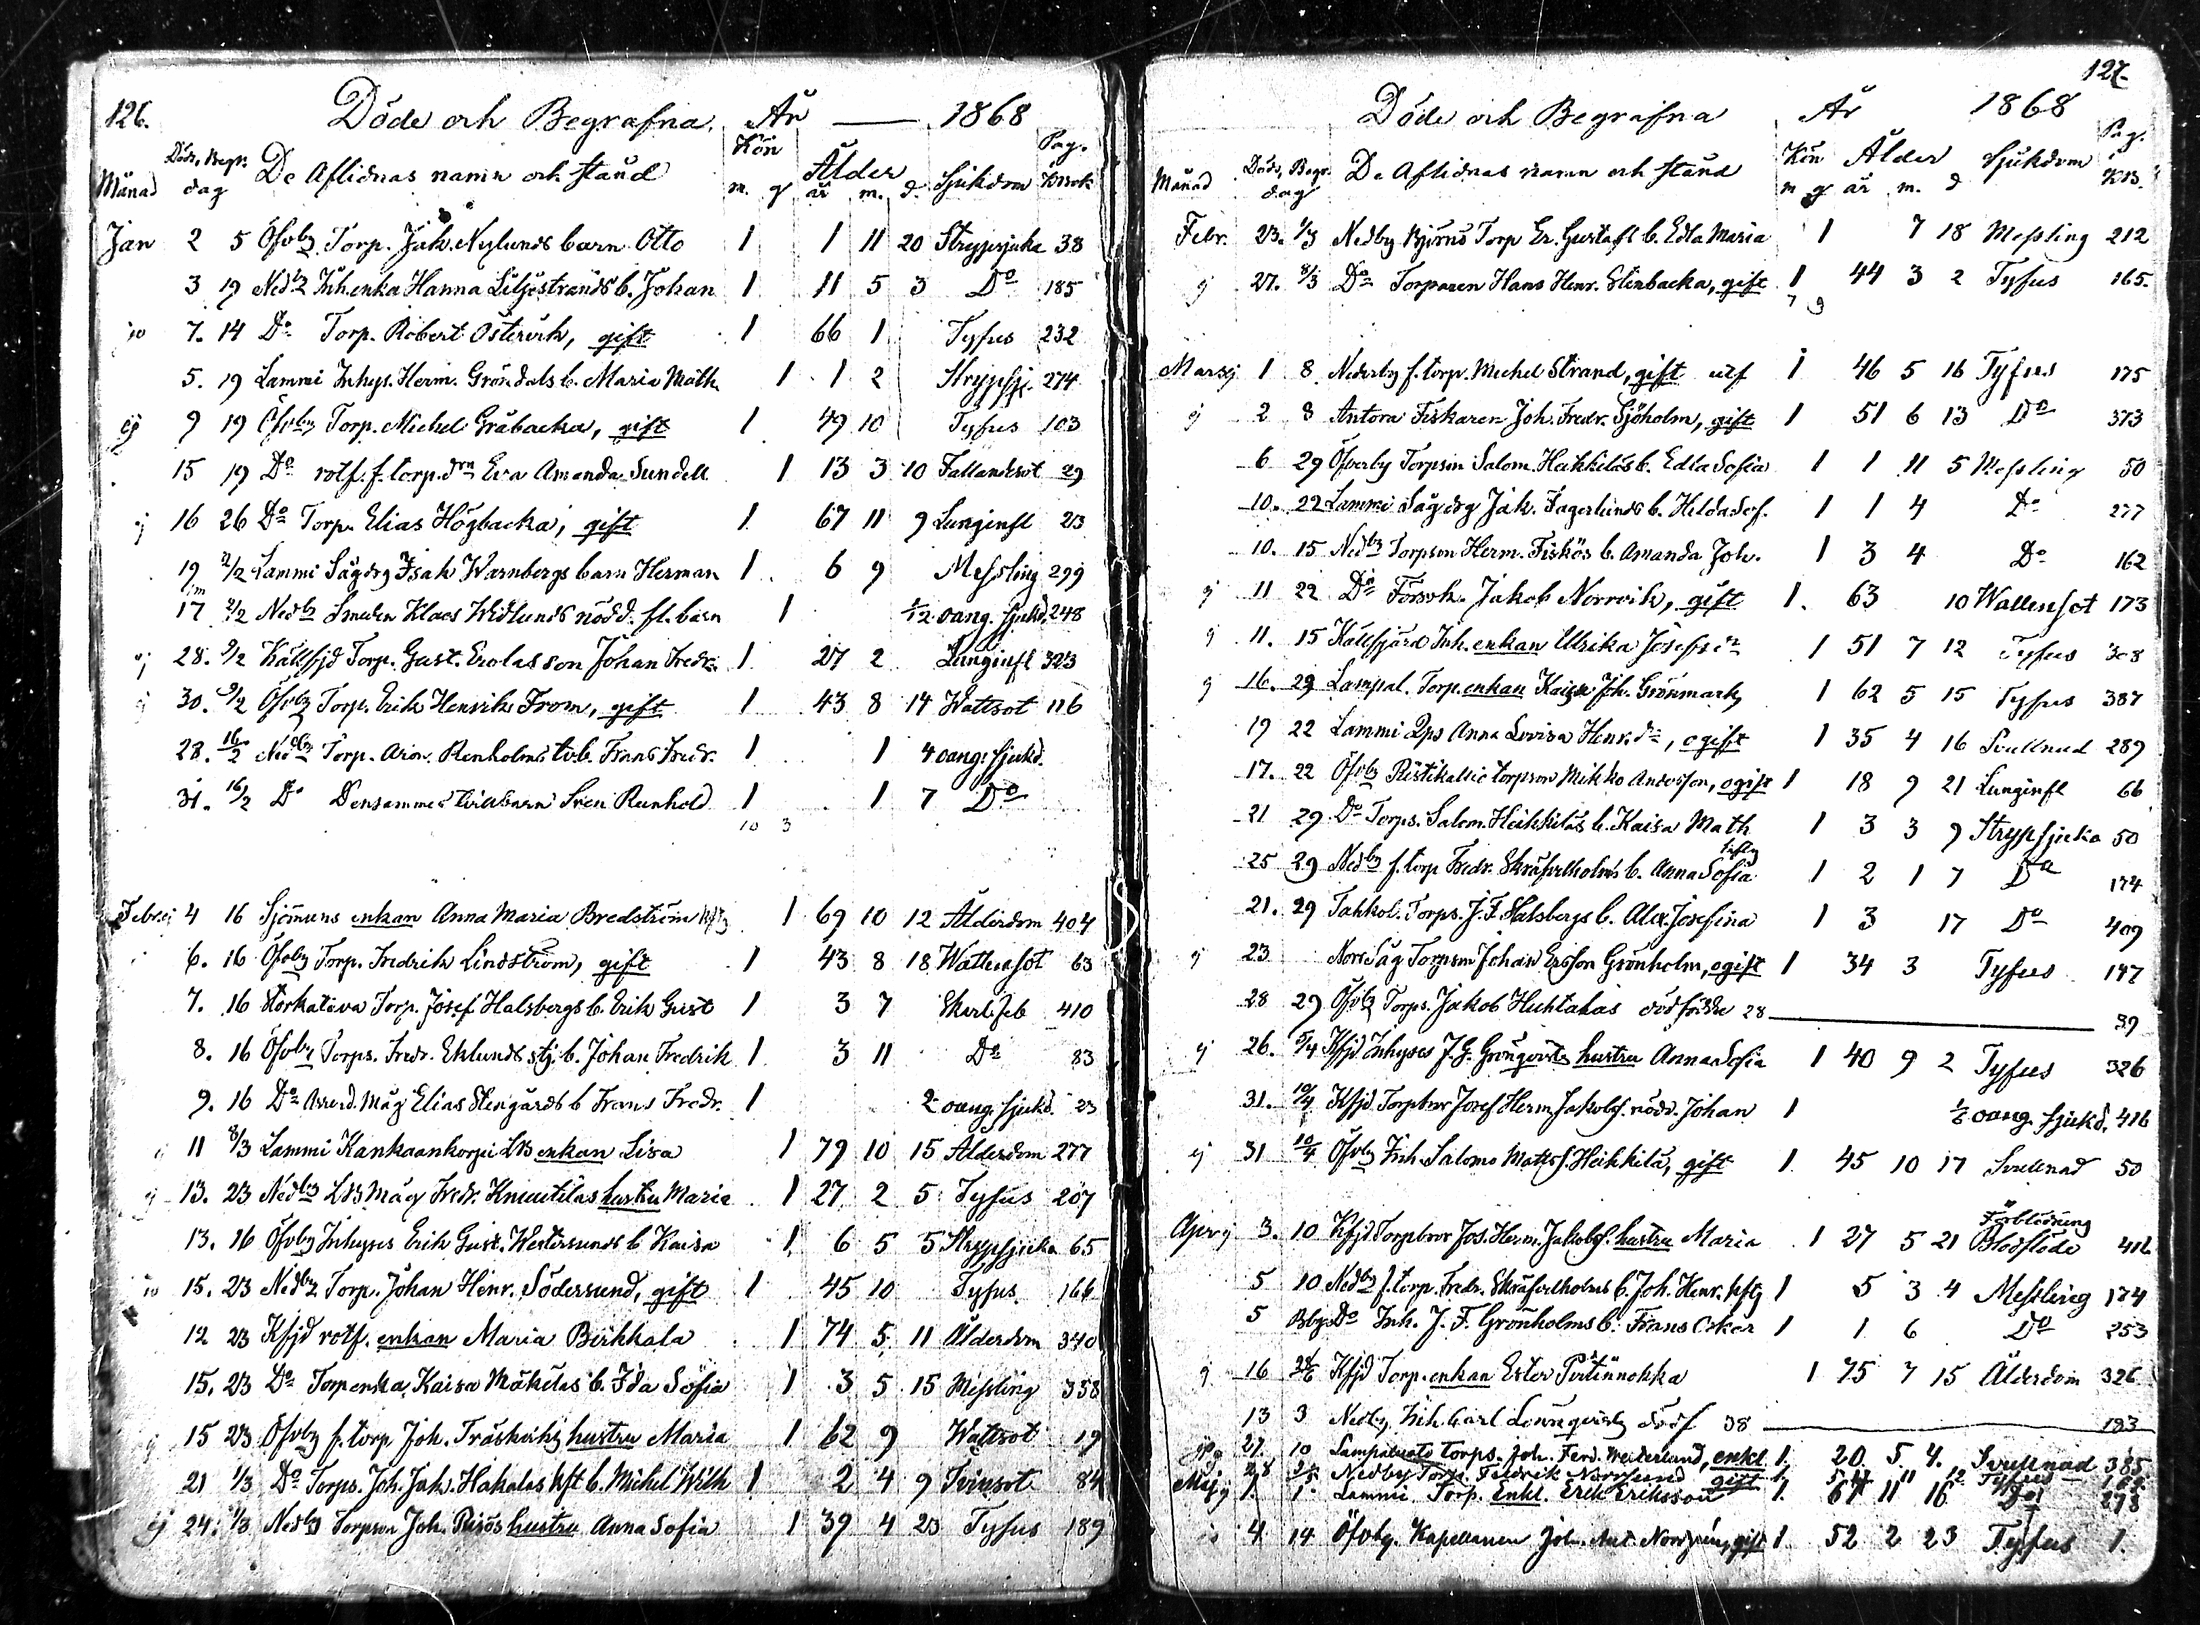 126.
Döde och Begrafna. År — 1868
Månad Döds, Begr. dag De Aflidnas namn och stånd Kön m. q Ålder år m. d. Sjukdom Pag. i Krbok
Jan 2 5 Öfvby Torp. Jak. Nylunds barn Otto 1 1 11 20 Strypsjuka 38
3 19 Nedby Inh.enka Hanna Liljestrands b. Johan 1 11 5 3 Do 185
7. 14 Do Torp. Robert Östervik, gift 1 66 1 Tyfus 232
5. 19 Lammi Inhys. Herm. Gröndals b. Maria Math. 1 1 2 Strypsj. 274
9 19 Öfvby Torp. Michel Gråbacka, gift 1 49 10 Tyfus 103
15 19 Do rotf. f. torp. drn Eva Amanda Sundell 1 13 3 10 Fallandesot 29
16 26 Do Torp. Elias Högbacka, gift 1 67 11 9 Lunginfl 23
19 2/2 Lammi Sågdrg Isak Warnbergs barn Herman 1 6 9 Messling 299
17 2/2 Nedby Smeden Klaes Widlunds nödd. fl. barn 1 1/2 oang. sjukd. 248
28. 9/2 Källfjd Torp. Gust. Erolas son Johan Fredr. 1 27 2 Lunginfl 323
30. 9/2 Öfvby Torp. Erik Henriks From, gift 1 43 8 14 Wattsot 116
28. 16/2 Nedby Torp. Aron. Renholms tvb. Frans Fredr. 1 1 4 oang. sjukd.
31. 16/2 Do Densammes tvillbarn Sven Renhold 1 1 7 Do
10 3
Febr. 4 16 Sjömans enkan Anna Maria Bredström 1 69 10 12 Ålderdom 404
6. 16 Öfvby Torp. Fredrik Lindström, gift 1 43 8 18 Wattensot 63
7. 16 Storkatava Torp. Josef Halsbergs b. Erik Gust 1 3 7 Skarl. feb 410
8. 16 Öfvby Torps. Fredr. Eklunds stj. b. Johan Fredrik 1 3 11 Do 83
9. 16 Do Arrend. Måg Elias Stengårds b Frans Fredr. 1 2 oang. sjukd. 23
11 8/3 Lammi Kankaankorpi LB enkan Lisa 1 79 10 15 Ålderdom 277
13. 23 Nedby LB Måg Fredr. Knuutilas hustru Maria 1 27 2 5 Tyfus 207
13. 16 Öfvby Inhyses Erik Gust. Westersunds b Kaisa 1 6 5 5 Strypsjuka 65
15. 23 Nedby Torp. Johan Henr. Södersund, gift 1 45 10 Tyfus 166
12 23 Kfjd rotf. enkan Maria Birkkala 1 74 5 11 Ålderdom 340
15. 23 Do Torpenka Kaisa Mäkiläs b. Ida Sofia 1 3 5 15 Messling 358
15 23 Öfvby f. torp Joh. Träskviks hustru Maria 1 62 9 Wattsot 19
21 1/3 Do Torps. Joh. Jak. Hakalas b. Michel Wilh 1 2 4 9 Tvinsot 84
24. 1/3 Nedby Torpson Joh. Risös hustru Anna Sofia 1 39 4 23 Tyfus 189
127.
Döde och Begrafna År 1868
Månad Döds, Begr. dag De Aflidnas namn och stånd Kön m q Ålder är m. d Sjukdom Pag. i KB.
Febr. 23. 1/3 Nedby Björns Torp Er. Gustafs b. Edla Maria 1 7 18 Messling 212
27. 8/3 Do Torparen Hans Henr. Stenbacka, gift 1 44 3 2 Tyfus 165.
7 9
Mars 1 8 Nederby f. torp. Michel Strand, gift 1 46 5 16 Tyfus 175
2 8 Antora Fiskaren Joh. Fredr. Sjöholm, gift 1 51 6 13 Do 373
6 29 Öfverby Torpson Salom. Heikkiläs b. Edla Sofia 1 1 11 5 Messling 50
10. 22 Lammi Sågdrg Jak. Fagerlunds b. Hilda Sof. 1 1 4 Do 277
10. 15 Nedby Torpson Herm. Fiskös b. Amanda Joh. 1 3 4 Do 162
11 22 Do Jakob Norrvik, gift 1. 63 10 Wattensot 173
11. 15 Källfjärd Inh. enkan Ulrika Josefsdr 1 51 7 12 Tyfus 308
16. 29 Lampal. Torp.enkan Kaisa Joh. Grönmark 1 62 5 15 Tyfus 387
19 22 Lammi Pps Anna Lovisa Henr.dr, ogift 1 35 4 16 Svullnad 289
17. 22 Öfvby Ristikallio torpson Mikko Andersson, ogift 1 18 9 21 Lunginfl 66
21 29 Do Torps. Salom. Heikkiläs b. Kaisa Math 1 3 3 9 Strypsjuka 50
25 29 Nedby f. torp Fredr. Skräfvelholms b. Anna Sofia 1 2 1 7 Do 174
21. 29 Tahkol. Torps. J. F. Halsbergs b. Alex. Josefina 1 3 17 Do 409
23 Norr Såg Torpson Johan Ersson Grönholm, ogift 1 34 3 Tyfus 147
28 29 Öfvby Torps. Jakob Huhtakas dödfödde 28 — 39
26. 5/4 Kfjd Inhyses J. G. Grönqvists hustru Anna Sofia 1 40 9 2 Tyfus 326
31. 10/4 Kfjd Torpbror Josef Herm. Jakobss. nödd. Johan 1 1/2 oang. sjukd. 416
31 10/4 Öfvby Inh. Salomo Matts. Heikkilä, gift 1 45 10 17 Svullnad 50
Förblödning
Apr 3. 10 Kfjd Torpbror Jos. Herm. Jakobss. hustru Maria 1 27 5 21 Blodflöde 416
5 10 Nedby f. torp. Fredr. Skräfvelholms b. Joh. Henr. 1 5 3 4 Messling 174
5 Do Inh. J. F. Grönholms b. Frans Oskar 1 1 6 Do 253
16 Kfjd Torp.enkan Ester Pirtinnokka 1 75 7 15 Ålderdom 326
13 3 Nedby Inh. Carl Lönnqvists dödf 38 — 183
27 10 Torps. Joh. Ferd. Westerlund, enkl. 1. 20. 5. 4. Svullnad 385
28 Nedby Torp. Fredrik Norrlund gift 1. 54 11 12 Tyfus
Maj 1. 1. Lammi Torp. Enkl. Erik Eriksson 1. 67 11 16 Do 273
4 14 Öfvby. Kapellanen Joh. Ant. gift 1. 52 2 23 Tyfus 1.